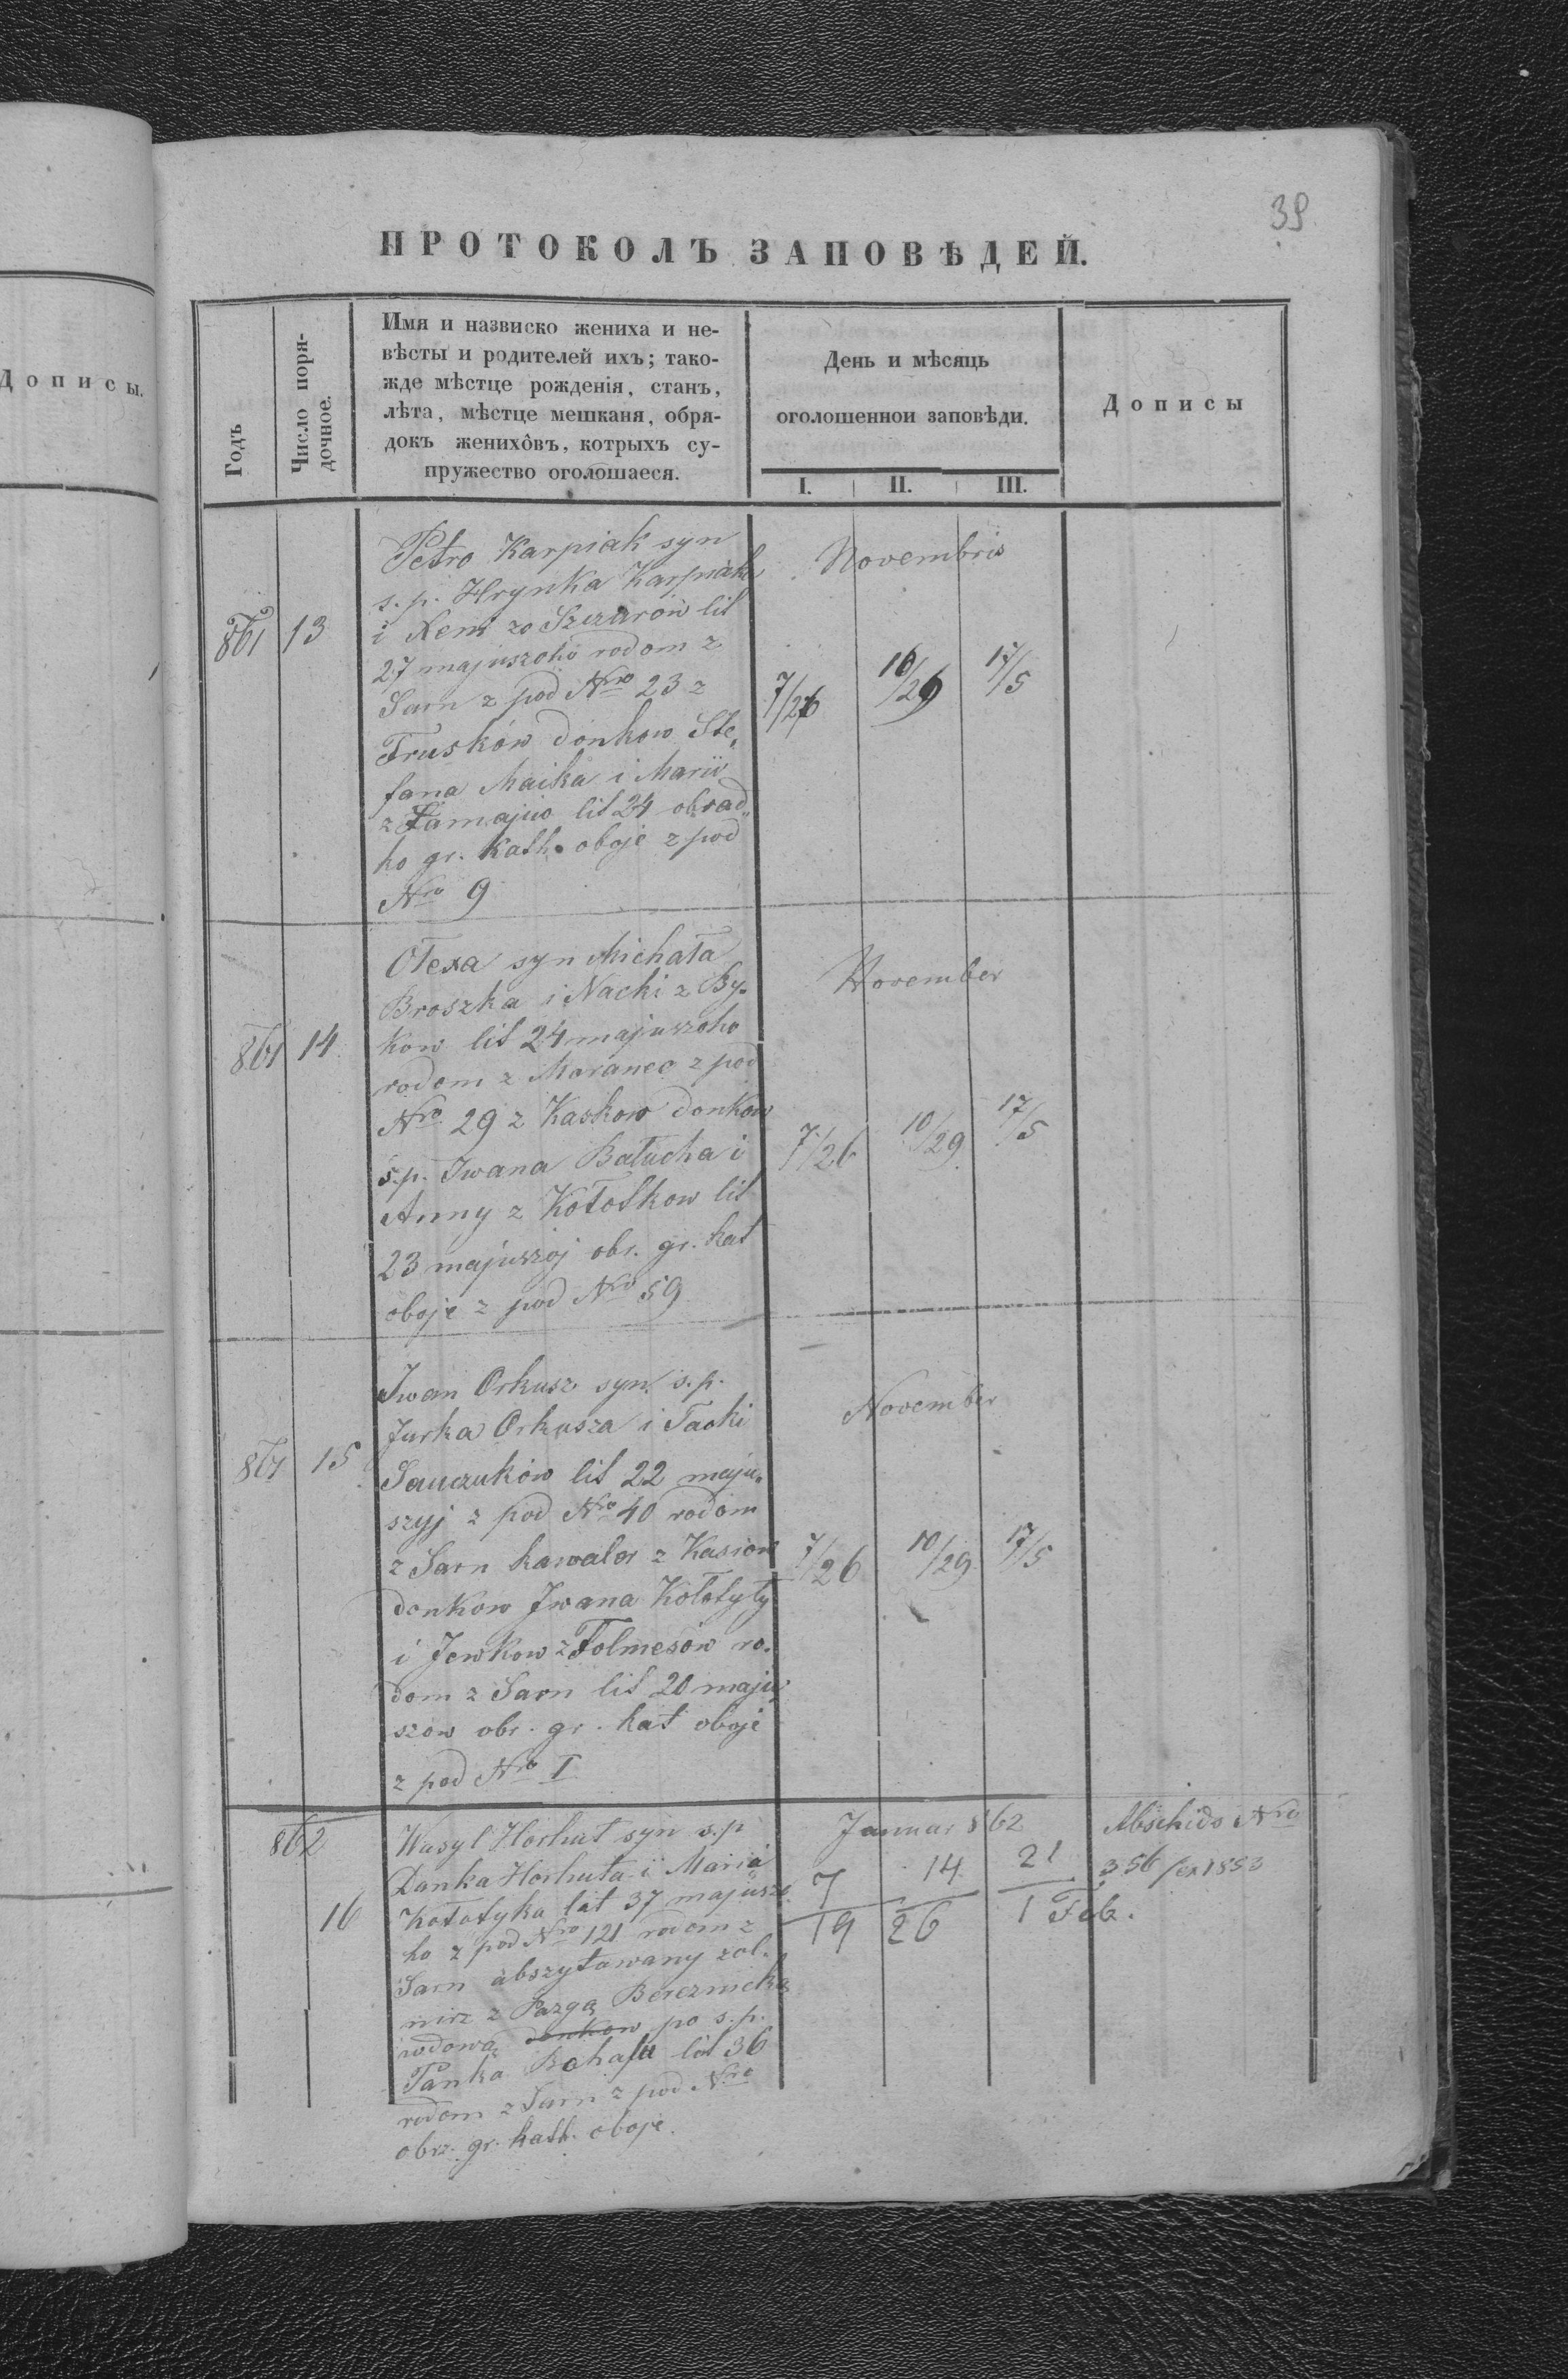 39
ПРОТОКОЛЪ ЗАПОВѢДЕЙ.
Дописы.
Годъ
Число поря-
дочное.
Имя и назвиско жениха и не-
вѣсты и родителей ихъ; тако-
жде мѣстце рожденія, станъ,
лѣта, мѣстце мешканя, обря-
докъ женихôвъ, котрыхъ су-
пружество оголошаеся.
День и мѣсяць
оголошеннои заповѣди.
I. II. III.
Дописы
861 13
Petro Karpiak syn
s. p. Hrynka Karpiaka
i Xeni zo Szczurów lit
27 majuszoho rodom z
Sarn z pod Nro 23 z
Frusków donkow Ste,
fana Maika i Marii
lit 24 obrad,
ho gr. Kath. oboje z pod
Nro 9
Novembris
7/26 10/29 17/5
861 14
Ołexa syn Michała
Broszka i Nacki z By-
kow lit 24 majuszoho
rodom z Moraniec z pod
Nro 29 z Kaskow donkow
s.p. Iwana Bałucha i
Anny z Kołotkow lit
23 majuszoj obr. gr. kat
oboje z pod Nro 59
November
7/26 10/29 17/5
861 15
Iwan Orkusz syn s. p.
Jurka Orkusza i Tacki
Sauczuków lit 22 maju-
szyj z pod Nro 40 rodom
z Sarn kawaler z Kasiow
donkow Iwana Kołotyły
i Jewkow z Folmesów ro-
dom z Sarn lit 20 maju,
szow obr. gr. kat oboje
z pod Nro I
November
7/26 10/29 17/5
862
16
Wasyl Horhut syn s.p
Danka Horhuta i Maria
Kołotyka lat 37 majuszo
ho z pod Nro 121 rodom z
Sarn abszytowany żoł-
nirz z Pazgą Bereznicką
wdową donkow po s.p.
Pańka lit 36
rodom z Sarn z pod Nro
obrz. gr. kath. oboje.
Januar 862
7 14 21
19 26 1 Feb.
Abschids Nro
356 / ex 1853